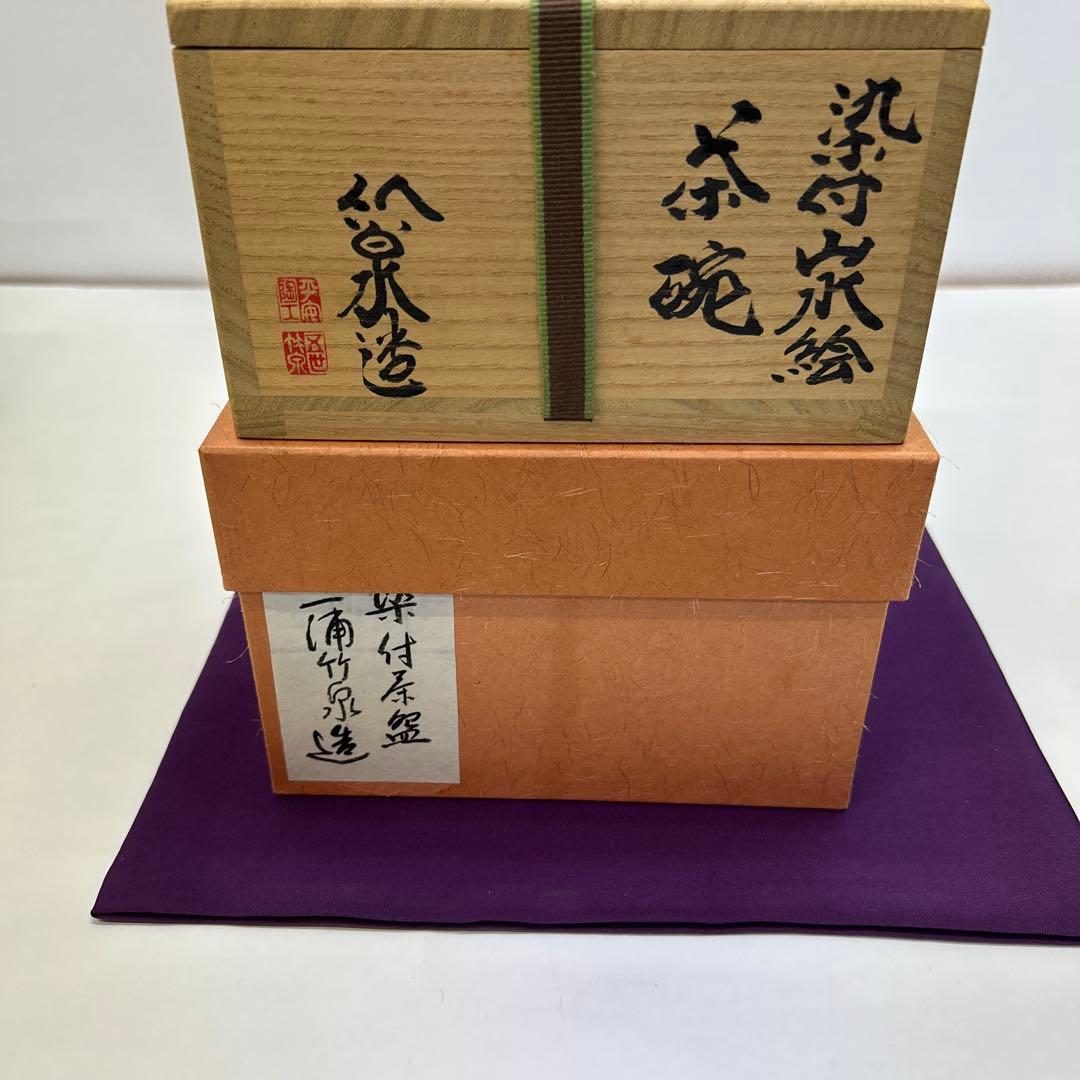 染付山水絵
茶碗
竹泉造
平安
陶工
五世
竹泉
染付茶盌
三浦竹泉造